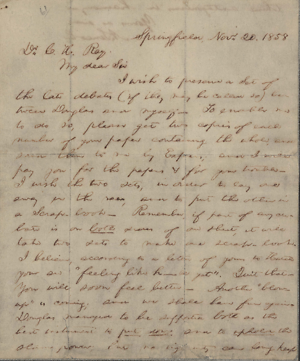 Springfield, Nov. 20, 1858
Dr. C. H. Ray
My dear Sir
I wish to preserve a Set
of the late debates (if they may be called so) be-
tween Douglas and myself. To enable me
to do so, please get two copies of each
number of your paper containing the whole, and
send them to me by Express; and I will
pay you for the papers & for your trouble.
I wish the two sets, in order to lay one
away in the raw, and to put the other in
a Scrap-book. Remember, if part of any de-
bate is on both sides of one sheet, it will
take two sets to make one scrap-book.
I believe, according to a letter of yours to Hatch
you are "feeling like h-ll yet". Quit that.
You will soon feel better. Another "blow-
up" is coming; and we shall have fun again.
Douglas managed to be supported both as the
best instrument to put down and to uphold the
slave power; but no ingenuity can long keep